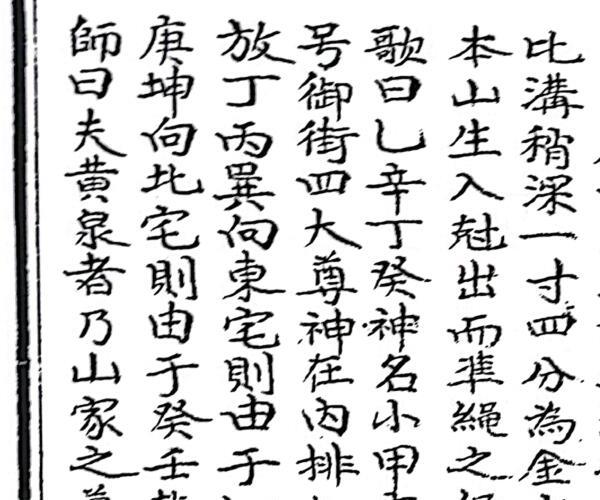 比溝稍深一寸四分為金
本山生入尅出而準繩之
歌曰乚辛丁癸神名小甲
号御街四大尊神在内排
放丁丙巽向東宅則由于
庚坤向北宅則由于癸壬
師曰夫黄泉者乃山家之